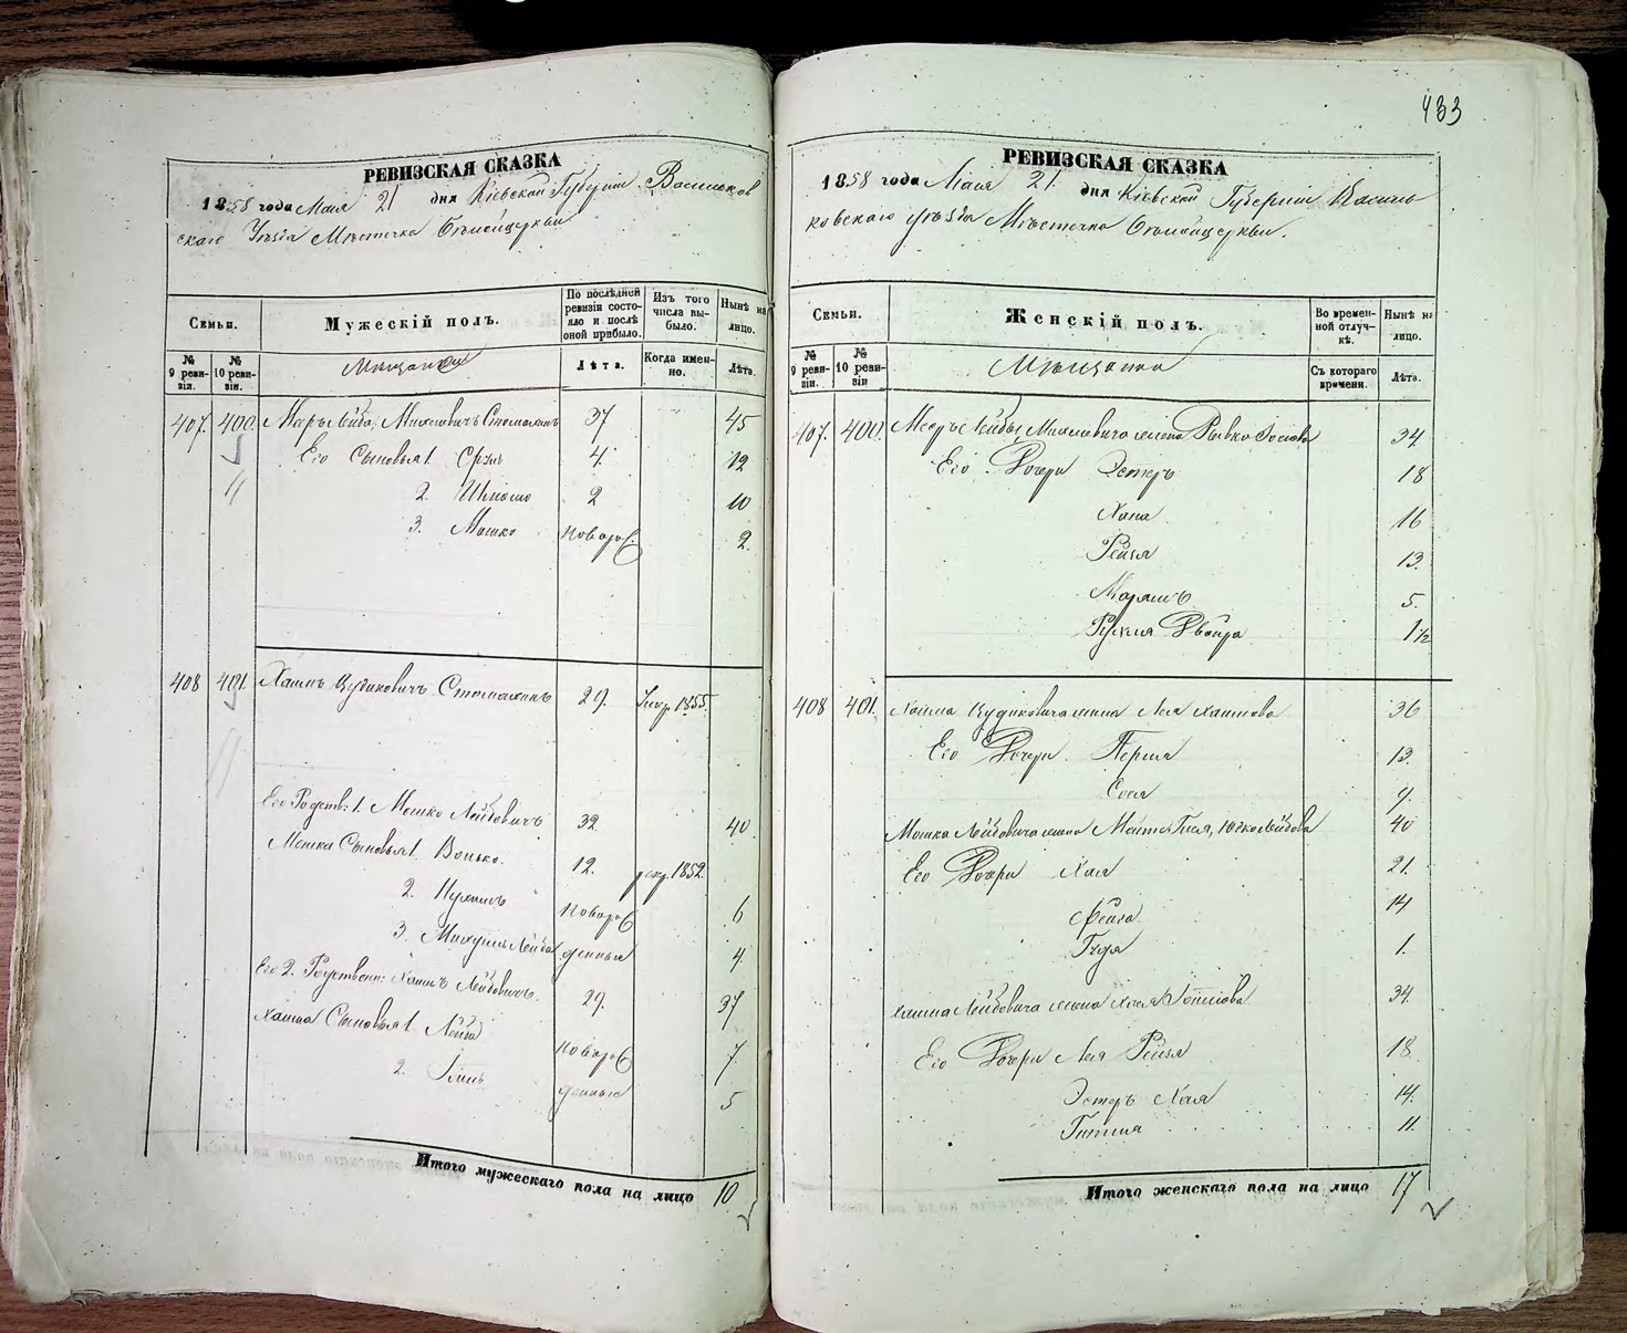 433
РЕВИЗСКАЯ СКАЗКА
1858 года Мая 21 дня Кіевской Губерніи Васильков
скаго Уѣзда Мѣстечка Бѣлойцеркви
Семьи.
Мужескій полъ.
По послѣдней ревизіи состояло и послѣ оной прибыло.
Изъ того числа выбыло.
Нынѣ на лицо.
№ 9 ревизіи.
№ 10 ревизіи.
Мѣщане
Лѣта.
Когда именно.
Лѣта.
407. 400. Меръ Лейба, Михелевичъ 37 45
Его Сыновья 1. Сруль 4. 12
2. Шлиома 2 10
3. Мошко новорож. 2.
408 401. Хаимъ Цудиковичъ 29. Умер. 1855.
Его Родств: 1. Мошко Лейбовичъ 32. 40
Мошка Сыновья 1. Волько. 12. рекр. 1852.
2. новорож 6
3. Лейба денные 4.
Его 2. Родственн: Хаимъ Лейбовичъ. 29. 37
Хаима Сыновья 1. Лейба новорож 7.
2. денные 5
Итого мужескаго пола на лицо 10
РЕВИЗСКАЯ СКАЗКА
1858 года Мая 21. дня Кіевской Губерніи Василь
ковскаго уѣзда Мѣстечка Бѣлойцеркви.
Семьи.
Женскій полъ.
Во временной отлучкѣ.
Нынѣ на лицо.
№ 9 ревизіи.
№ 10 ревизіи
Мѣщанки
Съ котораго времени.
Лѣта.
407. 400. Меръ Лейбы Михелевича жена Рывка 34
Его Дочери Эстеръ 18
Хана 16
Рейзя 13.
Маріямъ 5.
Двойра 1½
408 401. Хаима Цудиковича жена Лея Хаимова 36
Его Дочери Перля 13.
Сося 9.
Мошка Лейбовича жена Лейбова 40
Его Дочери Хая 21.
Фейга 14
Гидя 1.
Хаима Лейбовича жена Хая 34.
Его Дочери Лея Рейзя 18
Эстеръ Хая 14.
Гитля 11.
Итого женскаго пола на лицо 17